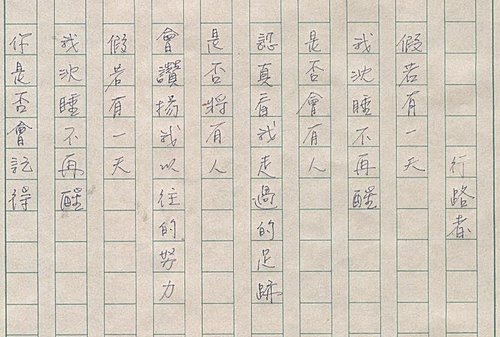 行路者
假若有一天
我沈睡不再醒
是否會有人
認真看我走過的足跡
是否將有人
會讚揚我以往的努力
假若有一天
我沈睡不再醒
你是否會記得